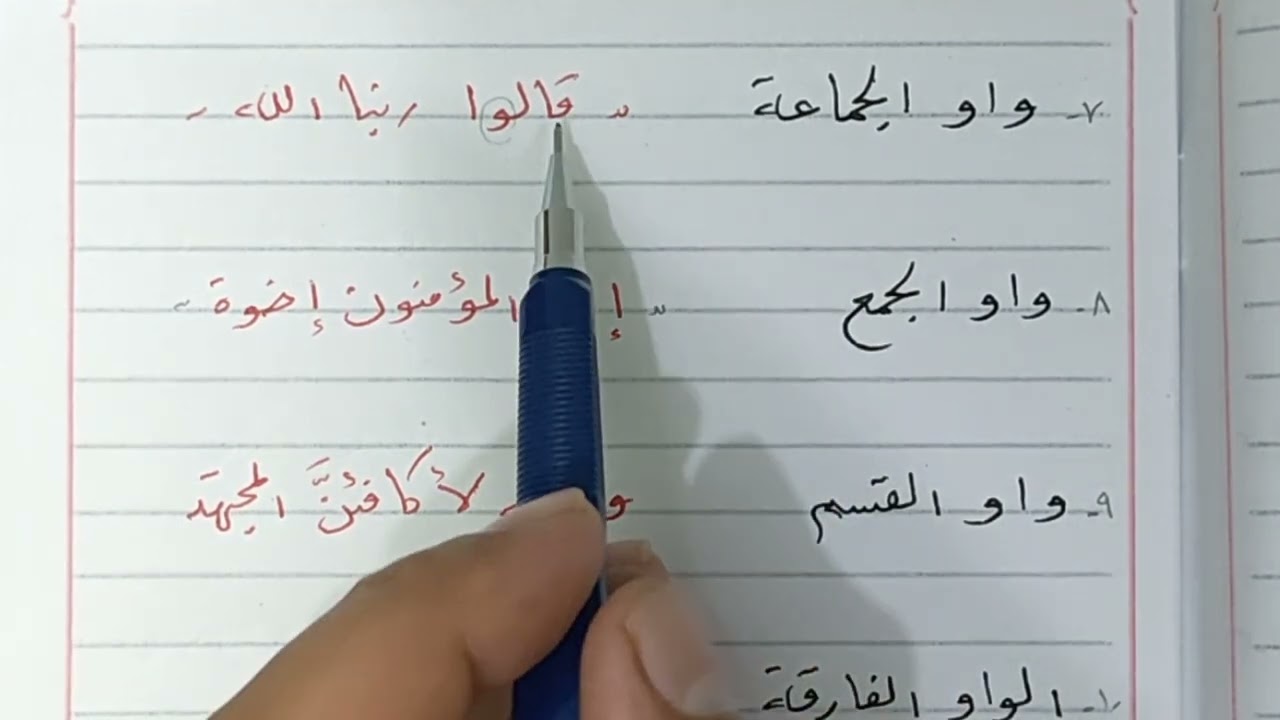 ٧- واو الجماعة " قَالوا ربنا الله "
٨- واو الجمع " إ المؤمنون إخوة "
٩- واو القسم و لأكافئنَّ المجتهد
١٠- الواو الفارقة